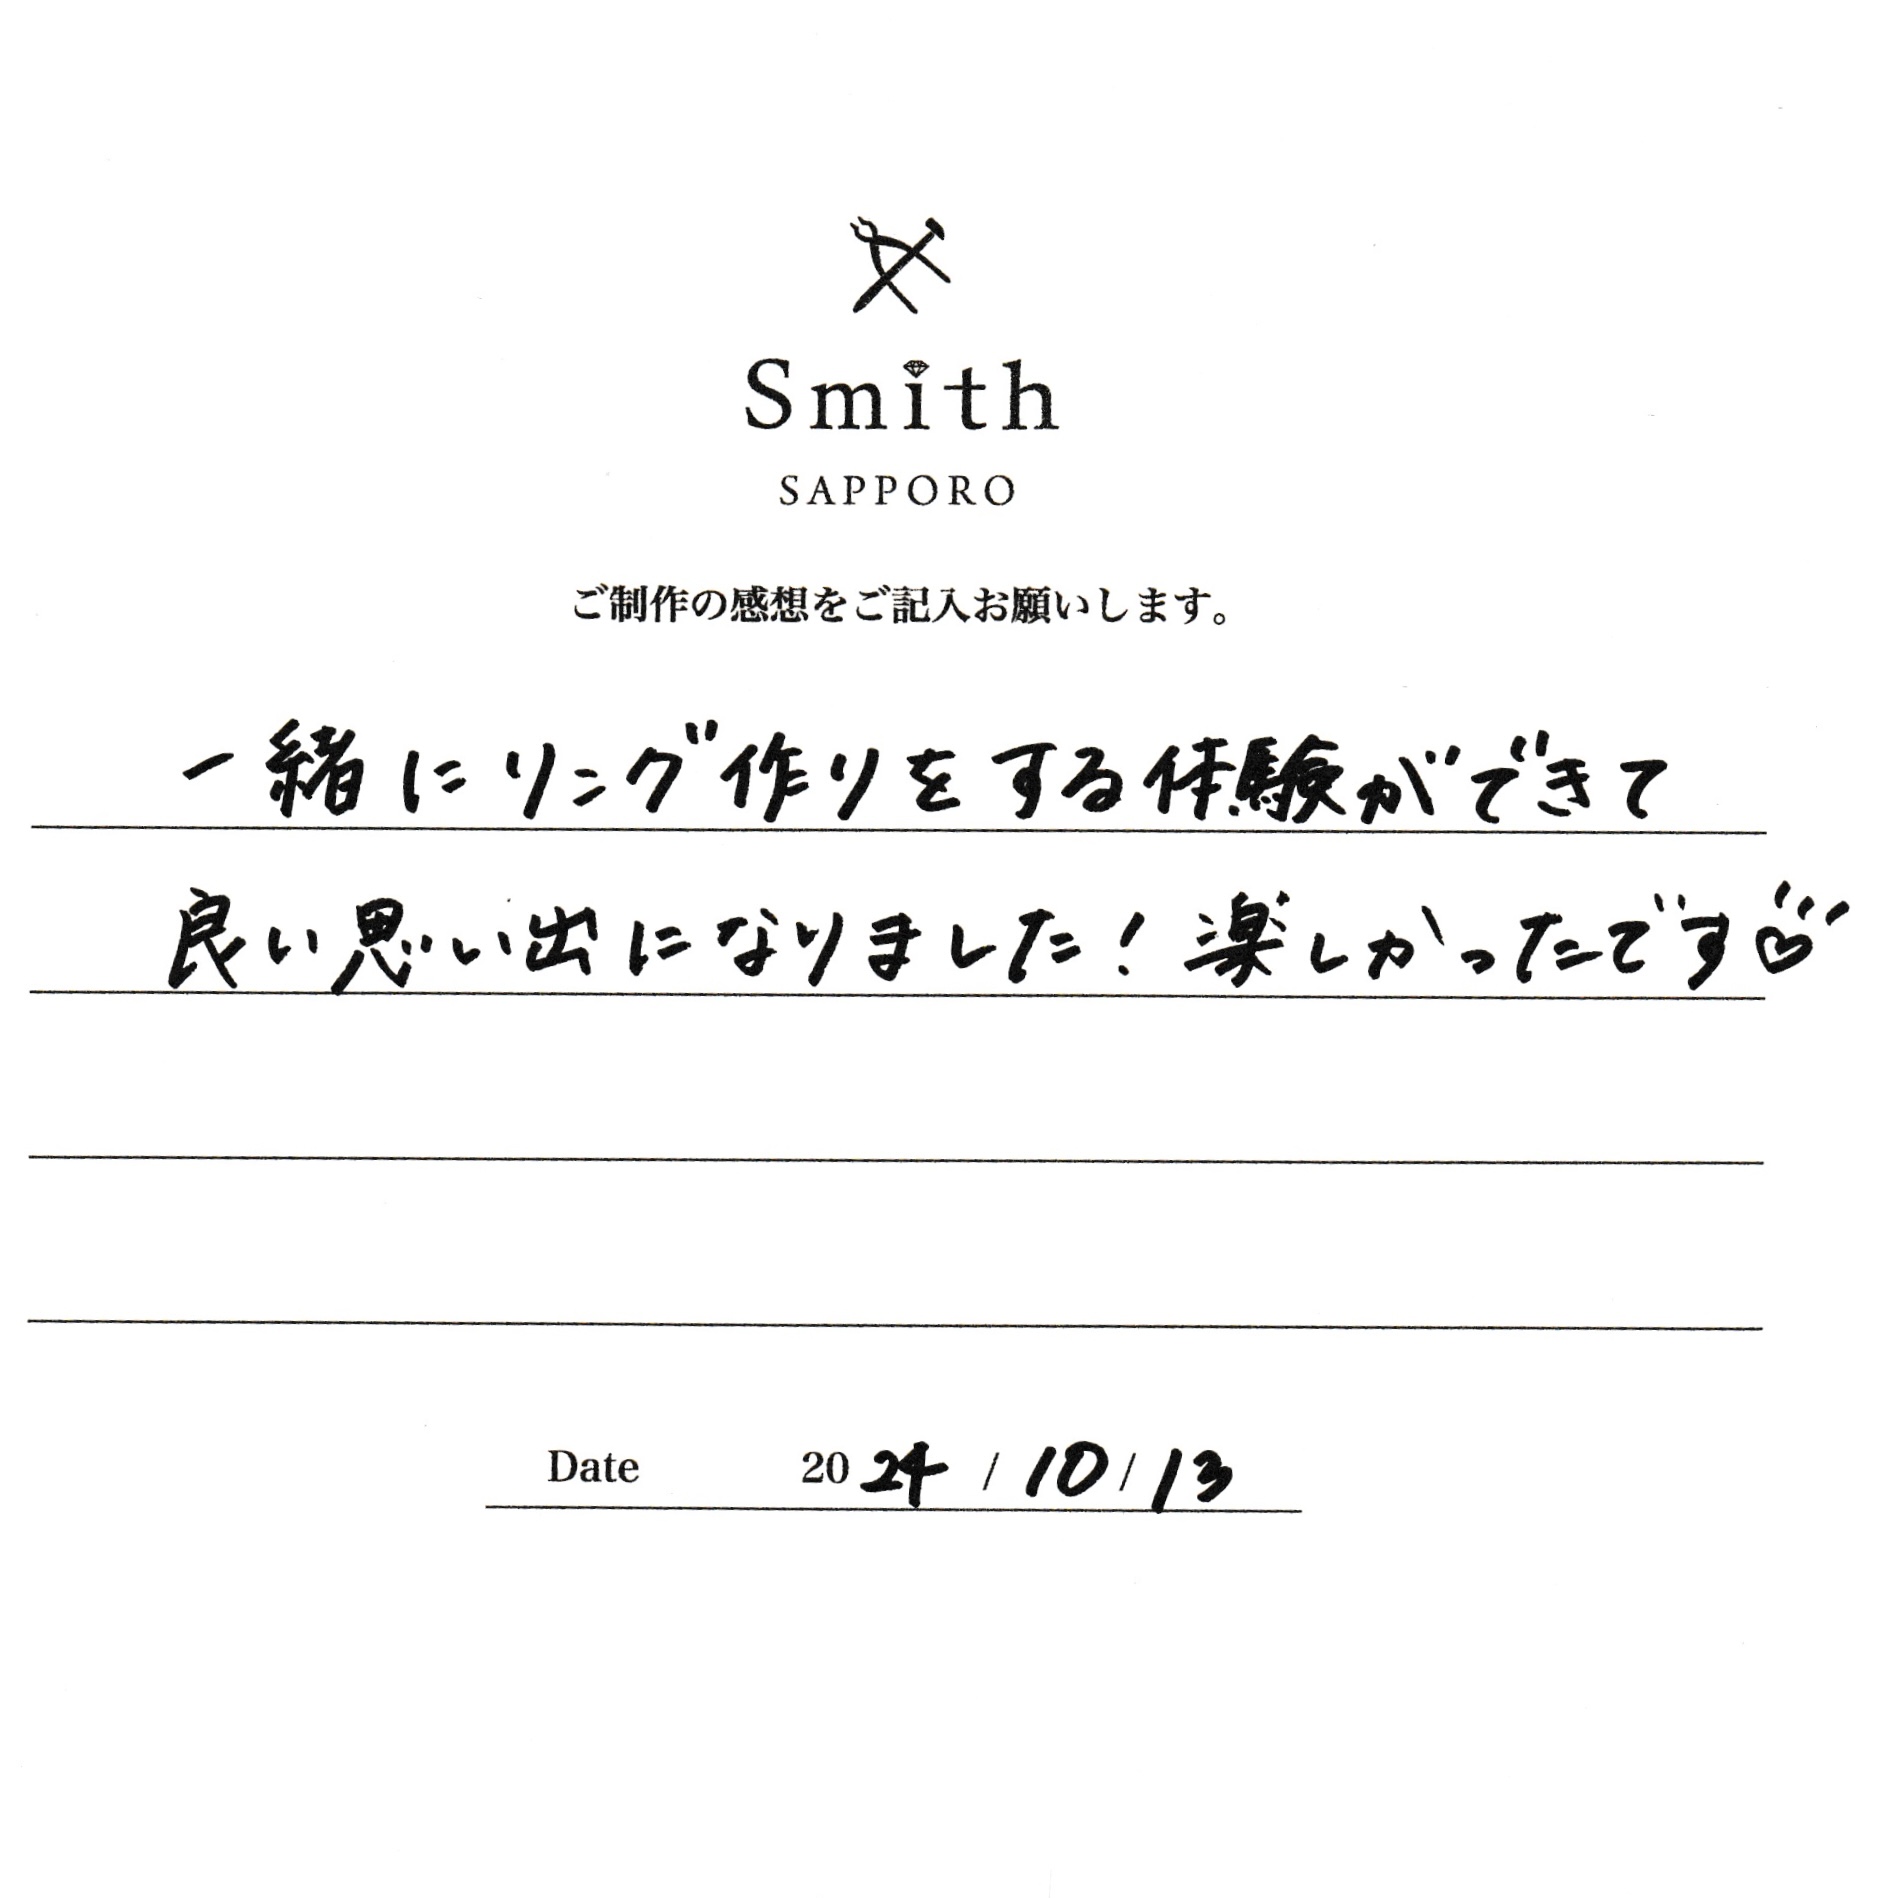 Smith
SAPPORO
ご制作の感想をご記入お願いします。
一緒にリング作りをする体験ができて
良い思い出になりました！楽しかったです♡
Date 2024 / 10 / 13